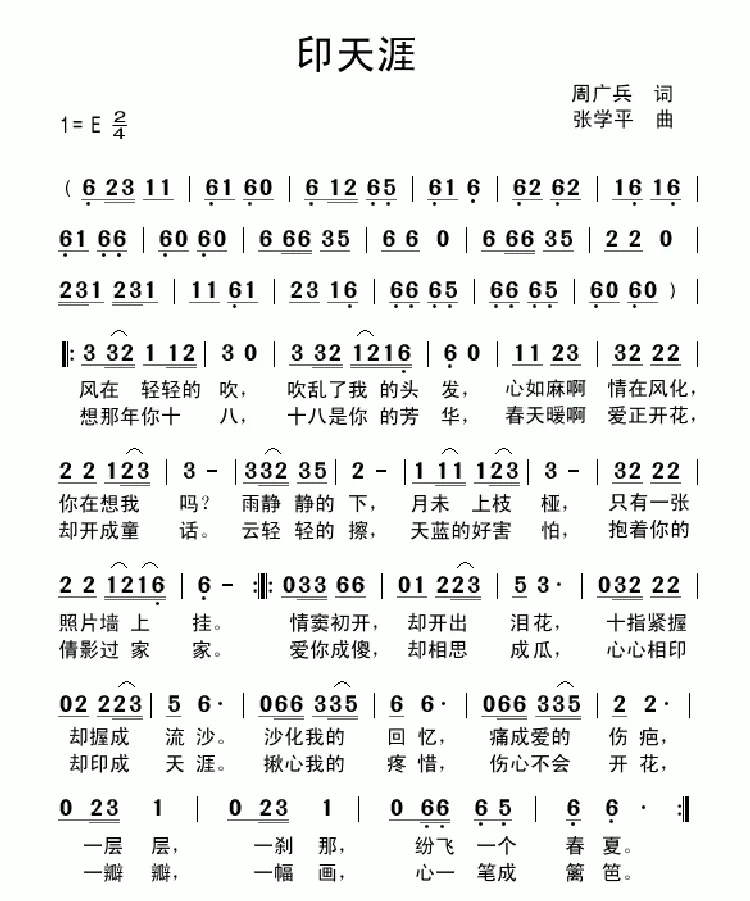 印天涯
周广兵 词
1= E 2/4
张学平 曲
( 6 23 11 | 61 60 | 6 12 65 | 61 6 | 62 62 | 16 16 |
61 66 | 60 60 | 6 66 35 | 6 6 0 | 6 66 35 | 2 2 0 |
231 231 | 11 61 | 23 16 | 66 65 | 66 65 | 60 60 ) |
‖: 3 32 1 12 | 3 0 | 3 32 1216 | 6 0 | 11 23 | 32 22 |
风在 轻轻的 吹， 吹乱了我 的头 发， 心如麻啊 情在风化，
想那年你十 八， 十八是你 的芳 华， 春天暖啊 爱正开花，
2 2 123 | 3 - | 332 35 | 2 - | 1 11 123 | 3 - | 32 22 |
你在想我 吗? 雨静 静的 下， 月未 上枝 桠， 只有一张
却开成童 话。 云轻 轻的 擦， 天蓝的好害 怕， 抱着你的
2 2 1216 | 6 - :‖: 033 66 | 01 223 | 5 3· | 032 22 |
照片墙 上 挂。 情窦初开， 却开出 泪花， 十指紧握
倩影过 家 家。 爱你成傻， 却相思 成瓜， 心心相印
02 223 | 5 6· | 066 335 | 6 6· | 066 335 | 2 2· |
却握成 流 沙。 沙化我的 回 忆， 痛成爱的 伤 疤，
却印成 天 涯。 揪心我的 疼 惜， 伤心不会 开 花，
0 23 1 | 0 23 1 | 0 66 6 5 | 6 6 · :‖
一层 层， 一刹 那， 纷飞 一个 春 夏。
一瓣 瓣， 一幅 画， 心一 笔成 篱 笆。